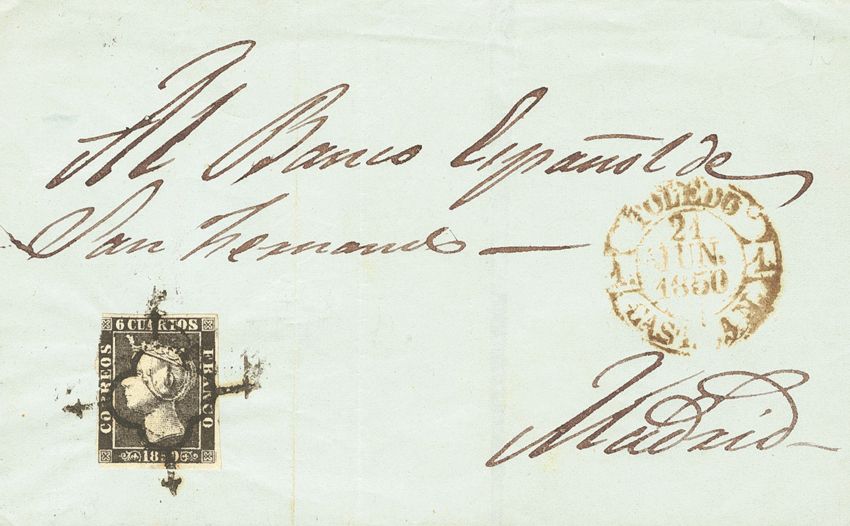 Al Banco Español de
San Fernando
TOLEDO
21
JUN.
1850
6 CUARTOS
CORREOS
FRANCO
1850
Madrid